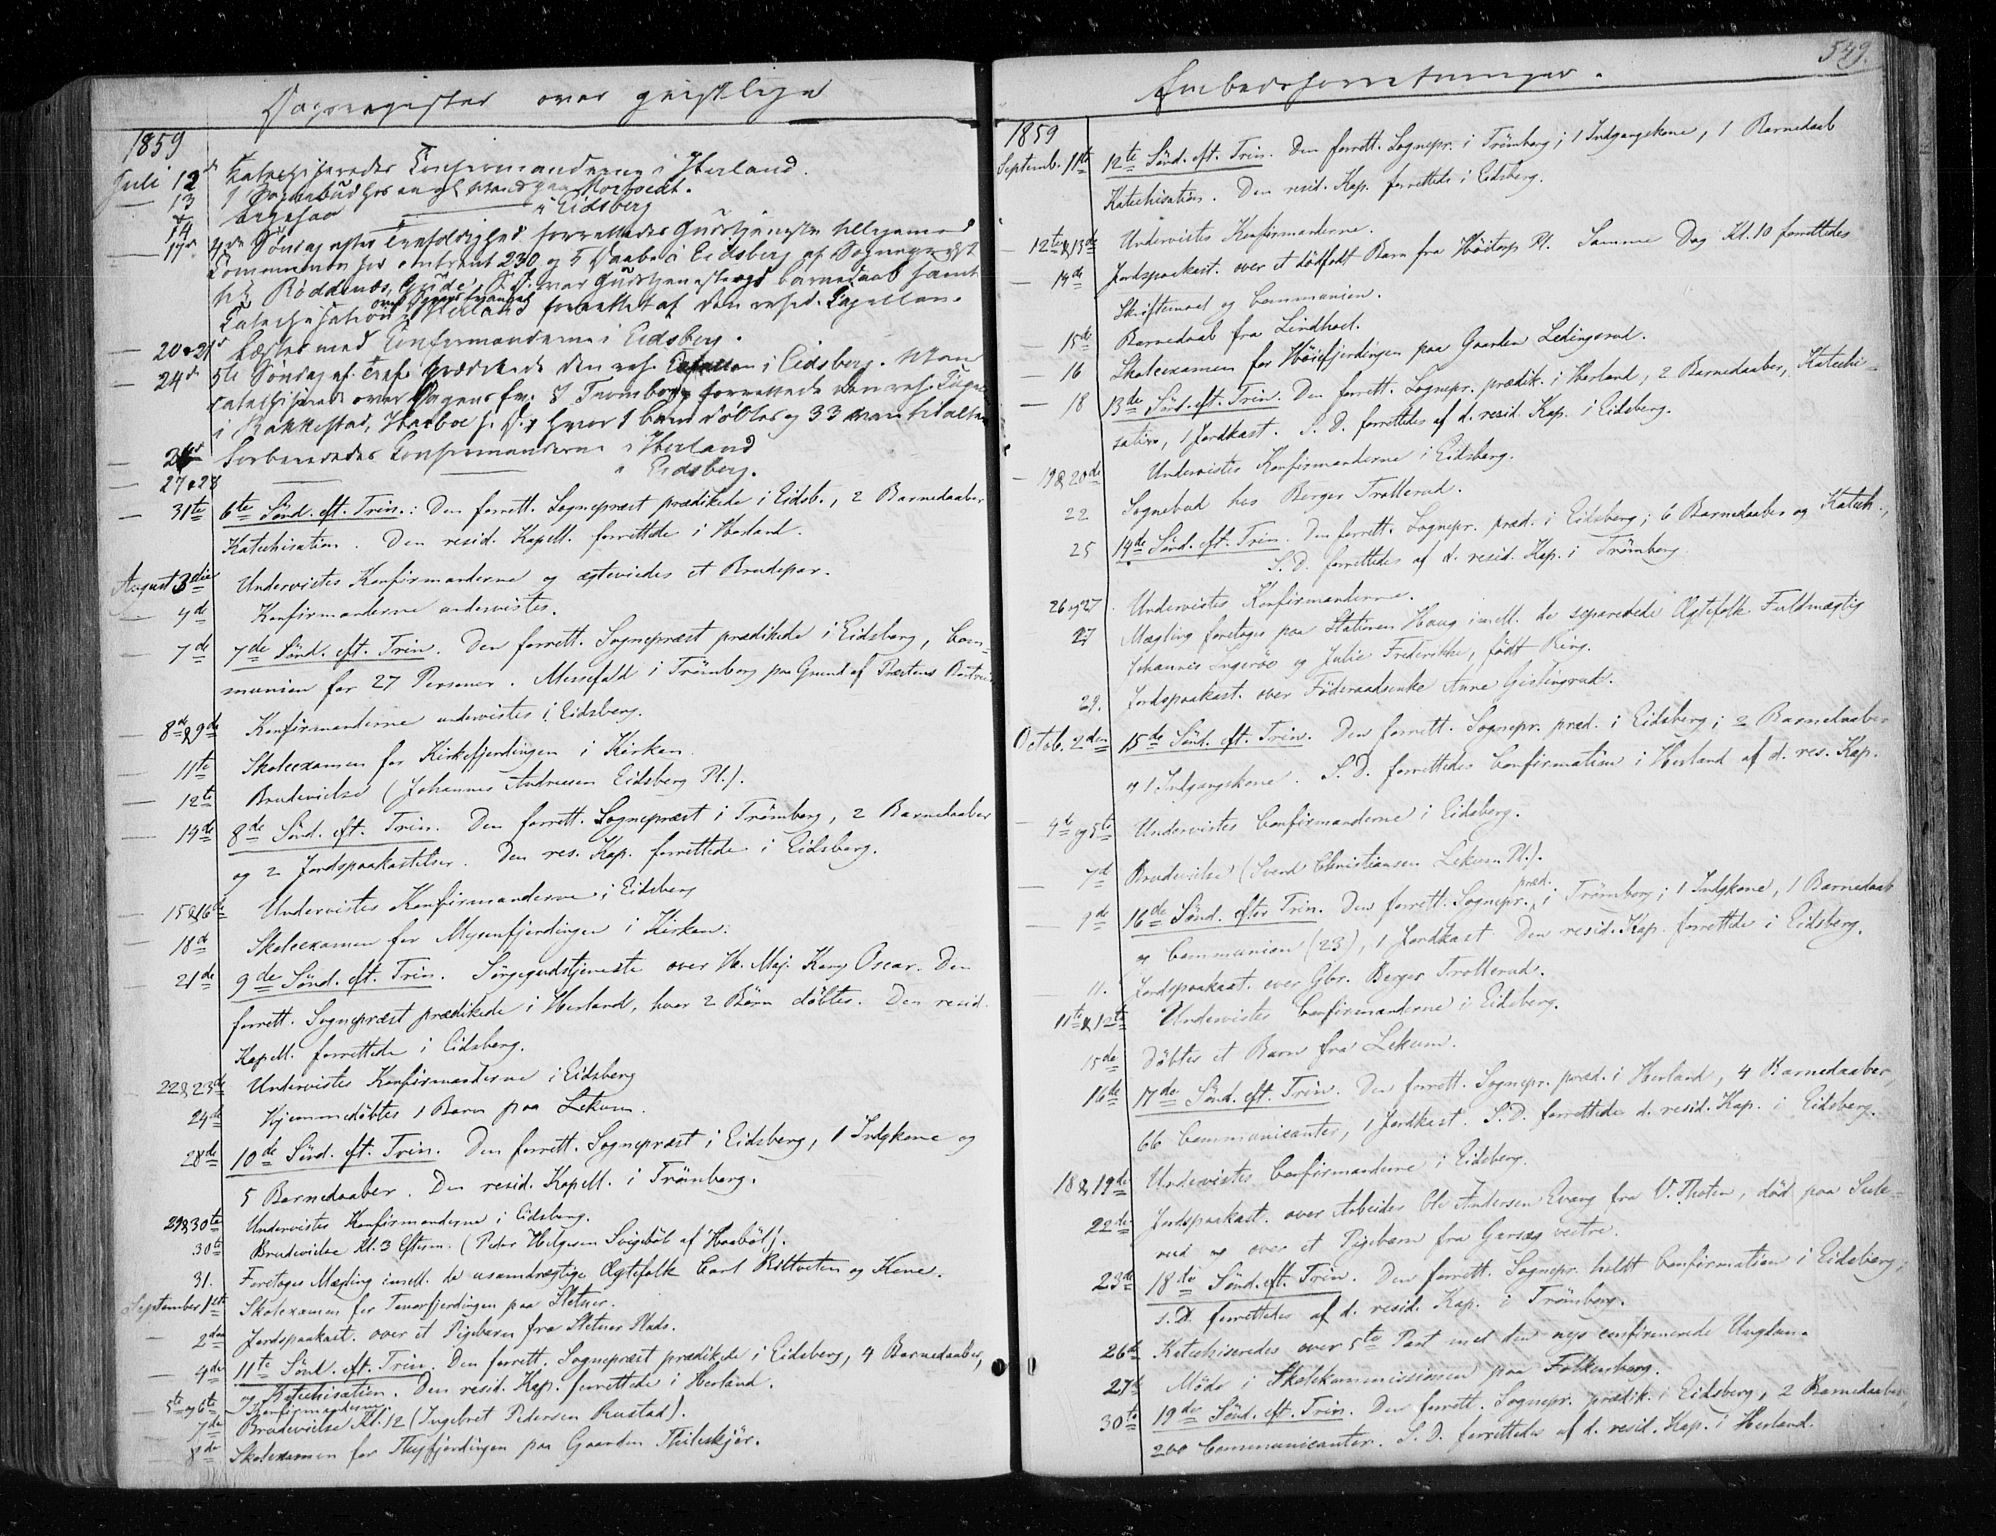 Dagsregister over geistlige
1859
Juli 12 Katechiseredes Confirmanderne i Herland.
13 1 Sognebud hos en gl. Mand paa
14 i Eidsberg
17 4de Söndag efter Trefoldighed forrettedes Gudstjeneste tilligemed
Communion for omtrent 230 og 5 Daabe i Eidsberg af Sognepræst
til Röddenæs, S. D. var Gudstjeneste og Barnedaab samt
Catechisation over Dagens Evangel. i Herland forrettet af den resid. Capellan.
20 & 21 Læstes med Confirmanderne i Eidsberg.
24de 5te Söndag ef. Tref. prædikede den res. Capellan i Eidsberg.
catechiserede over Dagens Ev. I Tromborg forrettede
i Rakkestad, hvor 1 barn döbtes og 33
26 Forberededes Confirmanderne i Herland
27 & 28 i Eidsberg.
31te 6te Sönd. eft. Trin.: Den forrett. Sognepræst prædikede i Eidsb., 2 Barnedaaber
Katechisation. Den resid. Kapell. forrettede i Herland.
August 3die Undervistes Konfirmanderne og ægteviedes et Brudepar.
4de Konfirmanderne undervistes.
7de 7de Sönd. eft. Trin. Den forrett. Sognepræst prædikede i Eidsberg, Com-
munion for 27 Personer. Messefald i Trömborg paa Grund af Præstens
8de & 9de Konfirmanderne undervistes i Eidsberg.
11te Skoleexamen for Kirkefjerdingen i Kirken.
12te Brudevielse (Johannes Andresen Eidsberg Pl.).
14de 8de Sönd. eft. Trin. Den forrett. Sognepræst i Trömborg, 2 Barnedaaber
og 2 Jordspaakastelser. Den res. Kap. forrettede i Eidsberg.
15 & 16de Undervistes Konfirmanderne i Eidsberg
18de Skoleexamen for Mysenfjerdingen i Kirken.
21de 9de Sönd. eft. Trin. Sörgegudstjeneste over H. Maj. Kong Oscar. Den
forrett. Sognepræst prædikede i Herland, hvor 2 Börn döbtes. Den resid.
Kapell. forrettede i Eidsberg.
22 & 23de Undervistes Konfirmanderne i Eidsberg
24de Hjemmedöbtes 1 Barn paa Lekum.
28de 10de Sönd. eft. Trin. Den forrett. Sognepræst i Eidsberg, 1 Indgkone og
5 Barnedaaber. Den resid. Kapell. i Trömborg.
29 & 30te Undervistes Konfirmanderne i Eidsberg.
30te Brudevielse Kl. 3 Efterm. (Peter Helgesen Svigeböl af Haaböl).
31. Foretoges Mægling imell. de usamdrægtige Ægtefolk Carl Kiltveten og Kone.
September 1ste Skoleexamen for Tenorfjerdingen paa Sletner.
2den Jordspaakast. over et Pigebarn fra Sletner Plads.
4de 11te Sönd. eft. Trin. Den forrett. Sognepræst prædikede i Eidsberg, 4 Barnedaaber,
og Katechisation. Den resid. Kap. forrettede i Herland.
5te og 6te Konfirmanderne.
7de Brudevielse Kl. 12 (Ingebret Pedersen Rustad).
8de Skoleexamen for Thyfjerdingen paa Gaarden Thileskjör.
549.
Embedsforretninger.
1859
Septemb. 11te 12te Sönd. eft. Trin. Den forrett. Sognepr. i Trömborg; 1 Indgangskone, 1 Barnedaab
Katechisation. Den resid. Kap. forrettede i Eidsberg.
12te & 13de Undervistes Konfirmanderne.
14de Jordspaakast. over et dödfödt Barn fra Höitorp Pl. Samme Dag Kl. 10 forrettedes
Skriftemaal og Communion.
15de Barnedaab fra Lindhol.
16 Skoleexamen for Höiefjerdingen paa Gaarden Ledingsrud.
18 13de Sönd. eft. Trin. Den forrett. Sognepr. prædik. i Herland, 2 Barnedaaber, Katechi-
sation, 1 Jordkast. S. D. forrettedes af d. resid. Kap. i Eidsberg.
19 & 20de Undervistes Konfirmanderne i Eidsberg.
22 Sognebud hos Berger Trollerud.
25 14de Sönd. eft. Trin. Den forrett. Sognepr. præd. i Eidsberg; 6 Barnedaaber og Katech.,
S. D. forrettedes af d. resid. Kap. i Trömborg.
26 og 27 Undervistes Konfirmanderne.
27 Mægling foretoges paa Stationen Haug imell. de separerede Ægtefolk Fuldmægtig
Johannes Ingeröe og Julie Frederikke, født Ring.
29. Jordspaakast. over Föderaadsenke Anne Gistingrud.
Octob. 2den 15de Sönd. eft. Trin. Den forrett. Sognepr. præd. i Eidsberg; 2 Barnedaaber
og 1 Indgangskone. S. D. forrettedes Confirmation i Herland af d. res. Kap.
4de og 5te Undervistes Confirmanderne i Eidsberg.
7d Brudevielse (Svend Christiansen Lekum Pl.).
9de 16de Sönd. efter Trin. Den forrett. Sognepr. præd. i Trömborg; 1 Indgkone, 1 Barnedaab
og Communion (23), 1 Jordkast. Den resid. Kap. forrettede i Eidsberg.
11. Jordspaakast. over Gbr. Berger Trollerud.
11te & 12te Undervistes Confirmanderne i Eidsberg.
15de Döbtes et Barn fra Lekum.
16de 17de Sönd. eft. Trin. Den forrett. Sognepr. præd. i Herland, 4 Barnedaaber,
66 Communicanter, 1 Jordkast. S. D. forrettedes d. resid. Kap. i Eidsberg.
18 & 19de Undervistes Confirmanderne i Eidsberg.
22de Jordspaakast. over Arbeider Ole Andersen Evang fra V. Thoten, död paa Sule-
rud og over et Pigebarn fra Garseg vestre.
23de 18de Sönd. eft. Trin. Den forrett. Sognepr. holdt Confirmation i Eidsberg;
S. D. forrettedes af d. resid. Kap. i Trömborg.
26de Katechiseredes over 5te Part med den nys confirmerede Ungdom.
27de Möde i Skolekommissionen paa Folkenborg.
30te 19de Sönd. eft. Trin. Den forrett. Sognepr. prædik. i Eidsberg, 2 Barnedaaber,
200 Communicanter. S. D. forrettedes af d. resid. Kap. i Herland.